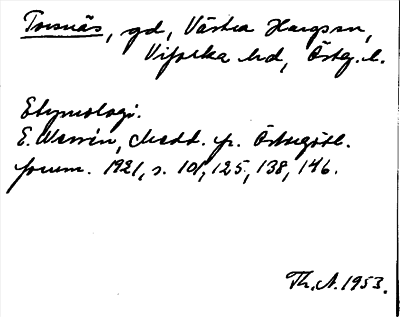 Torsnäs, gd, Västra Hargsn,
Vifolka hd, Östg. l.
Etymologi.
E. Wessén, Medd. fr. Östergötl.
fornm. 1921, s. 101, 125, 138, 146.
Th. A. 1953.